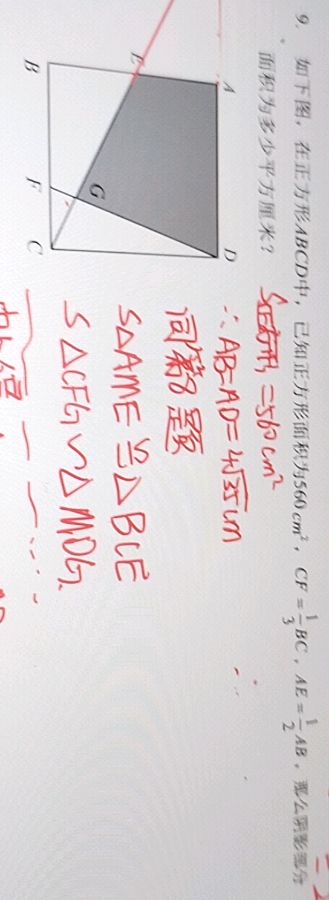 9. 如下图，在正方形ABCD中，已知正方形面积为560cm²，CF=1/3BC，AE=1/2AB，那么阴影部分
面积为多少平方厘米？
A
D
E
G
B
F
C
S正方形=560cm²
∴AB=AD=4√35cm
同第8题
S△AME≌△BCE
S△CFG∽△MDG.